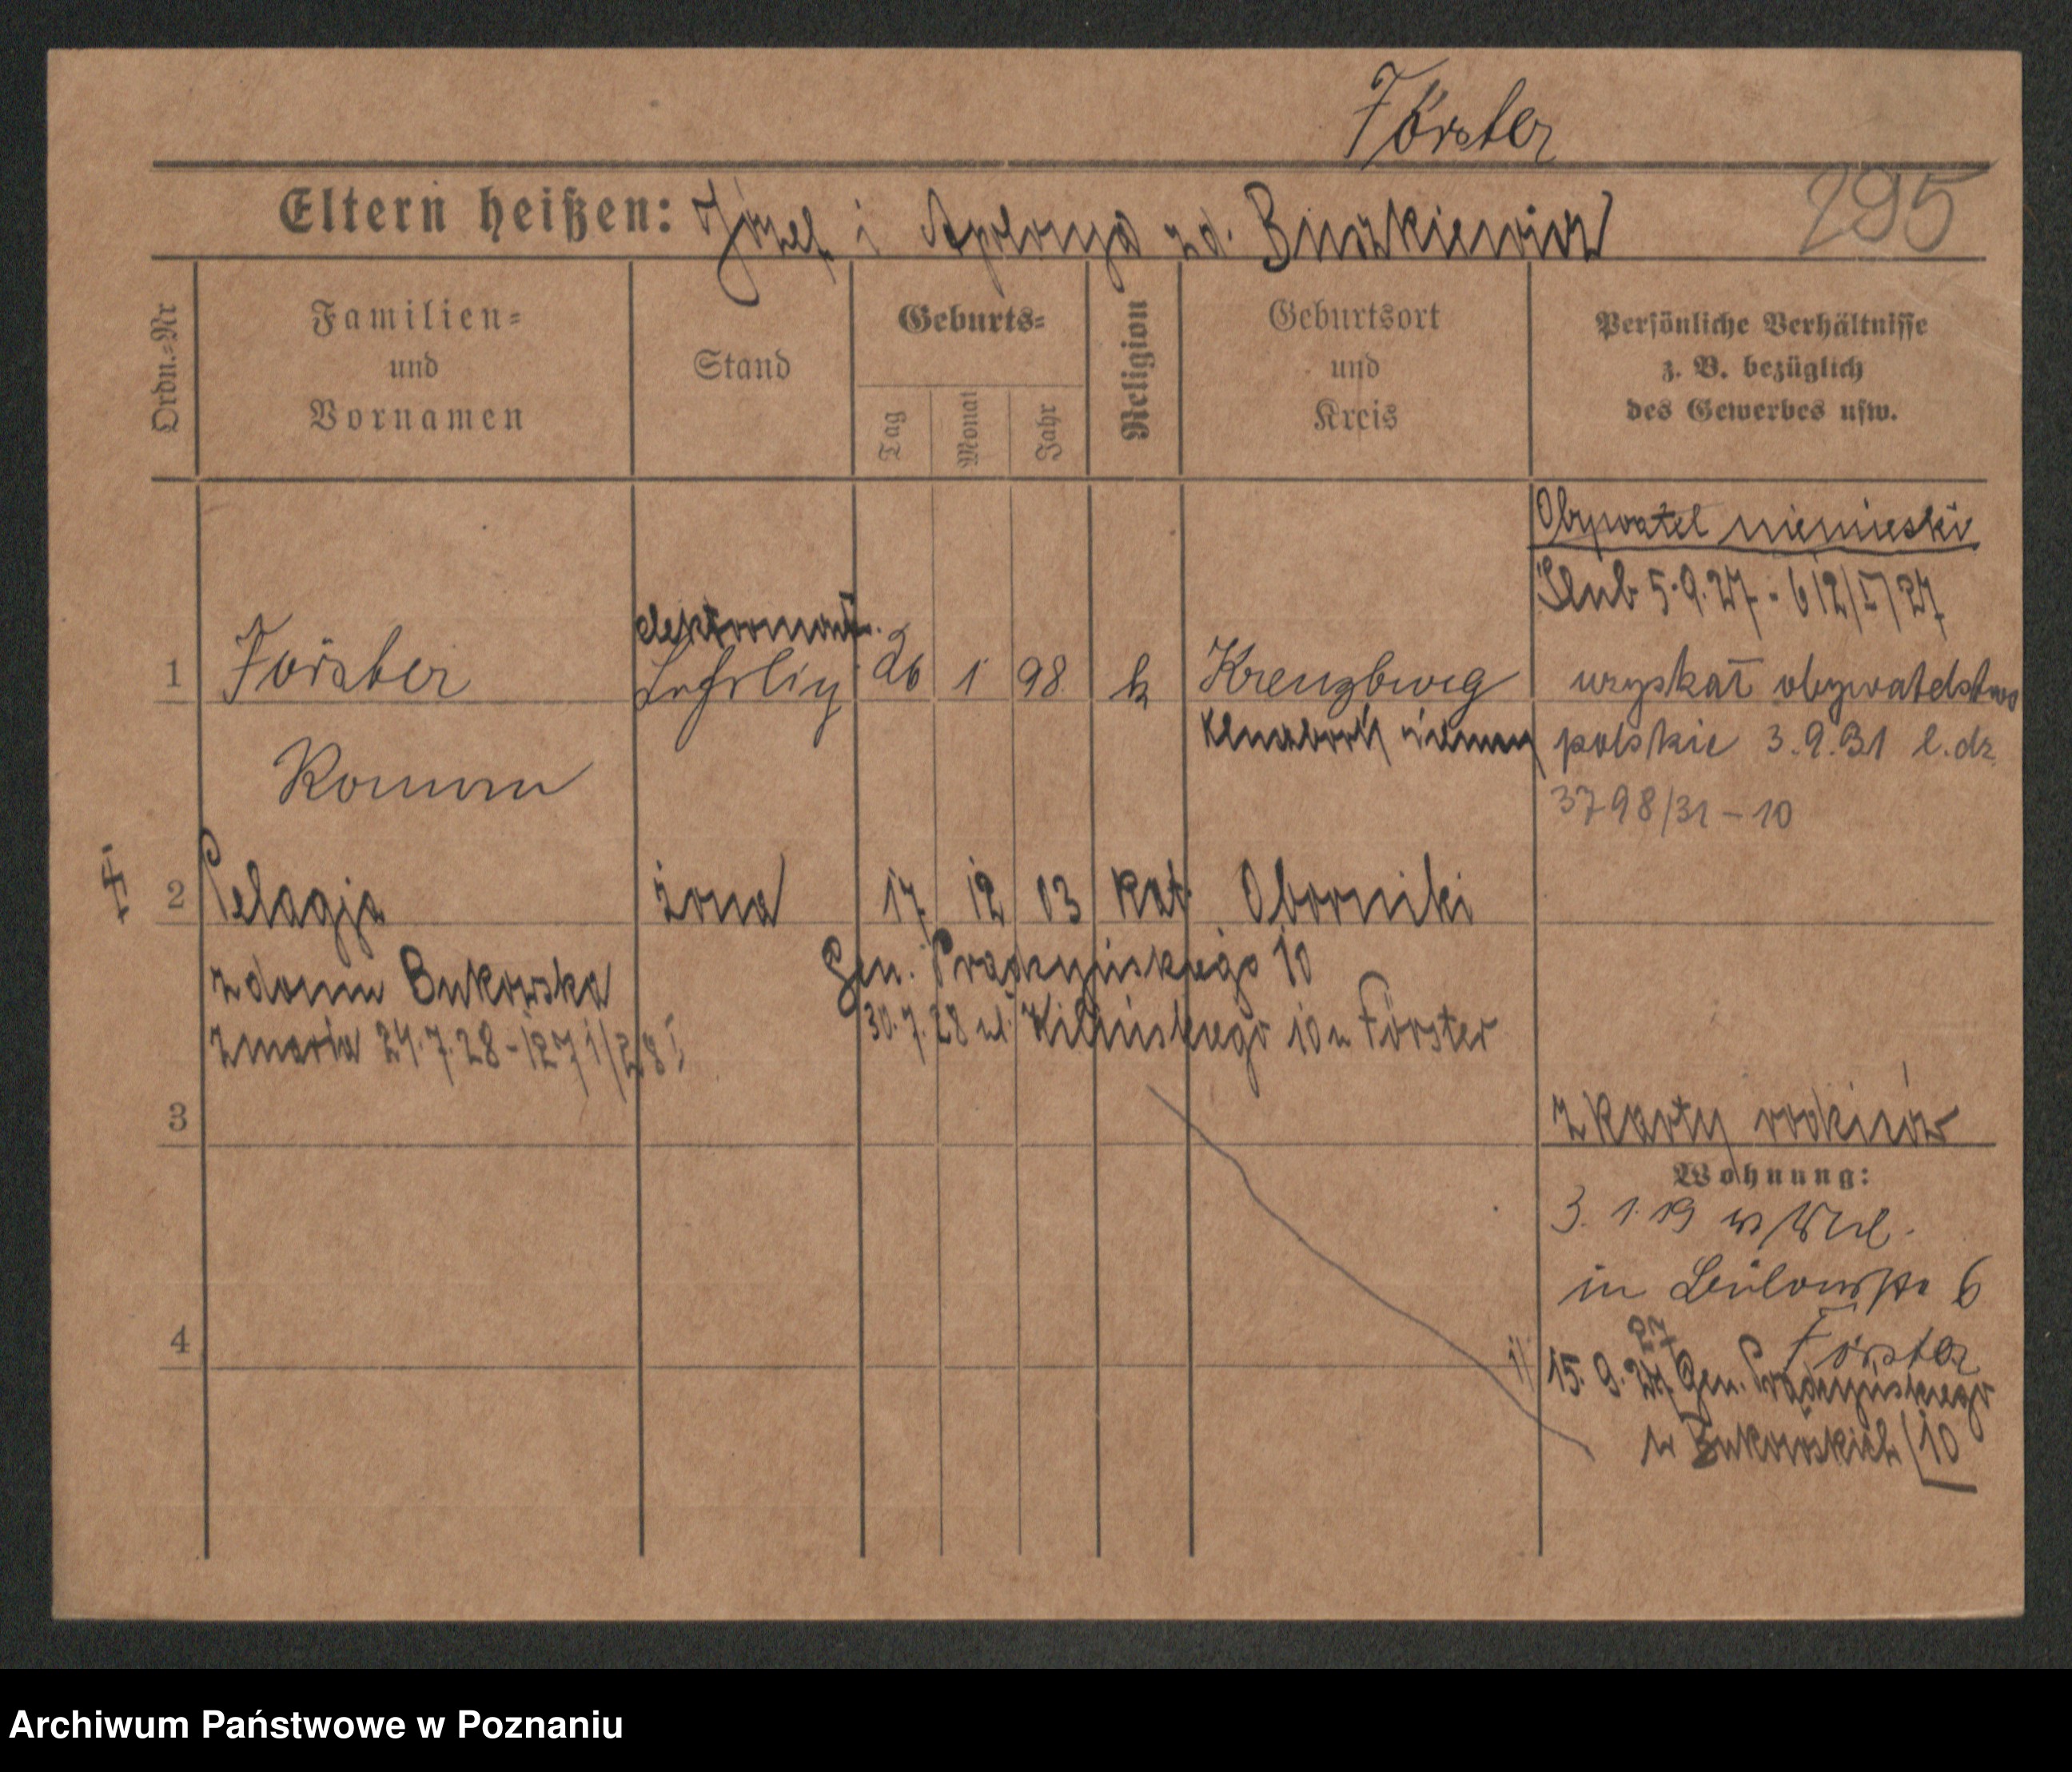 Förster
295
Eltern heißen: Józef i Apolonja zd. Buszkiewicz
Ordn.=Nr
Familien=
und
Vornamen
Stand
Geburts=
Tag
Monat
Jahr
Religion
Geburtsort
und
Kreis
Persönliche Verhältnisse
z. B. bezüglich
des Gewerbes usw.
Obywatel niemiecki
Ślub 5.9.27 - 612/I/27
elektromont.
1 Förster Lehrling 26 1 98 k Kreuzburg
uzyskał obywatelstwo
Roman
Kluczbork niemcy
polskie 3.9.31 l.dz.
3798/31 - 10
2 Pelagja żona 17 12 03 kat. Oborniki
z domu Bukowska
Gen. Prądzyńskiego 10
zmarła 24.7.28 - 1271/28
30.7.28 ul. Kilińskiego 10 u Förster
3
z karty rodziców
Wohnung:
3. 1. 19
in Bülowstr 6
Förster
4
1/ 15. 9. 27 Gen. Prądzyńskiego
u Bukowskich 10
Archiwum Państwowe w Poznaniu